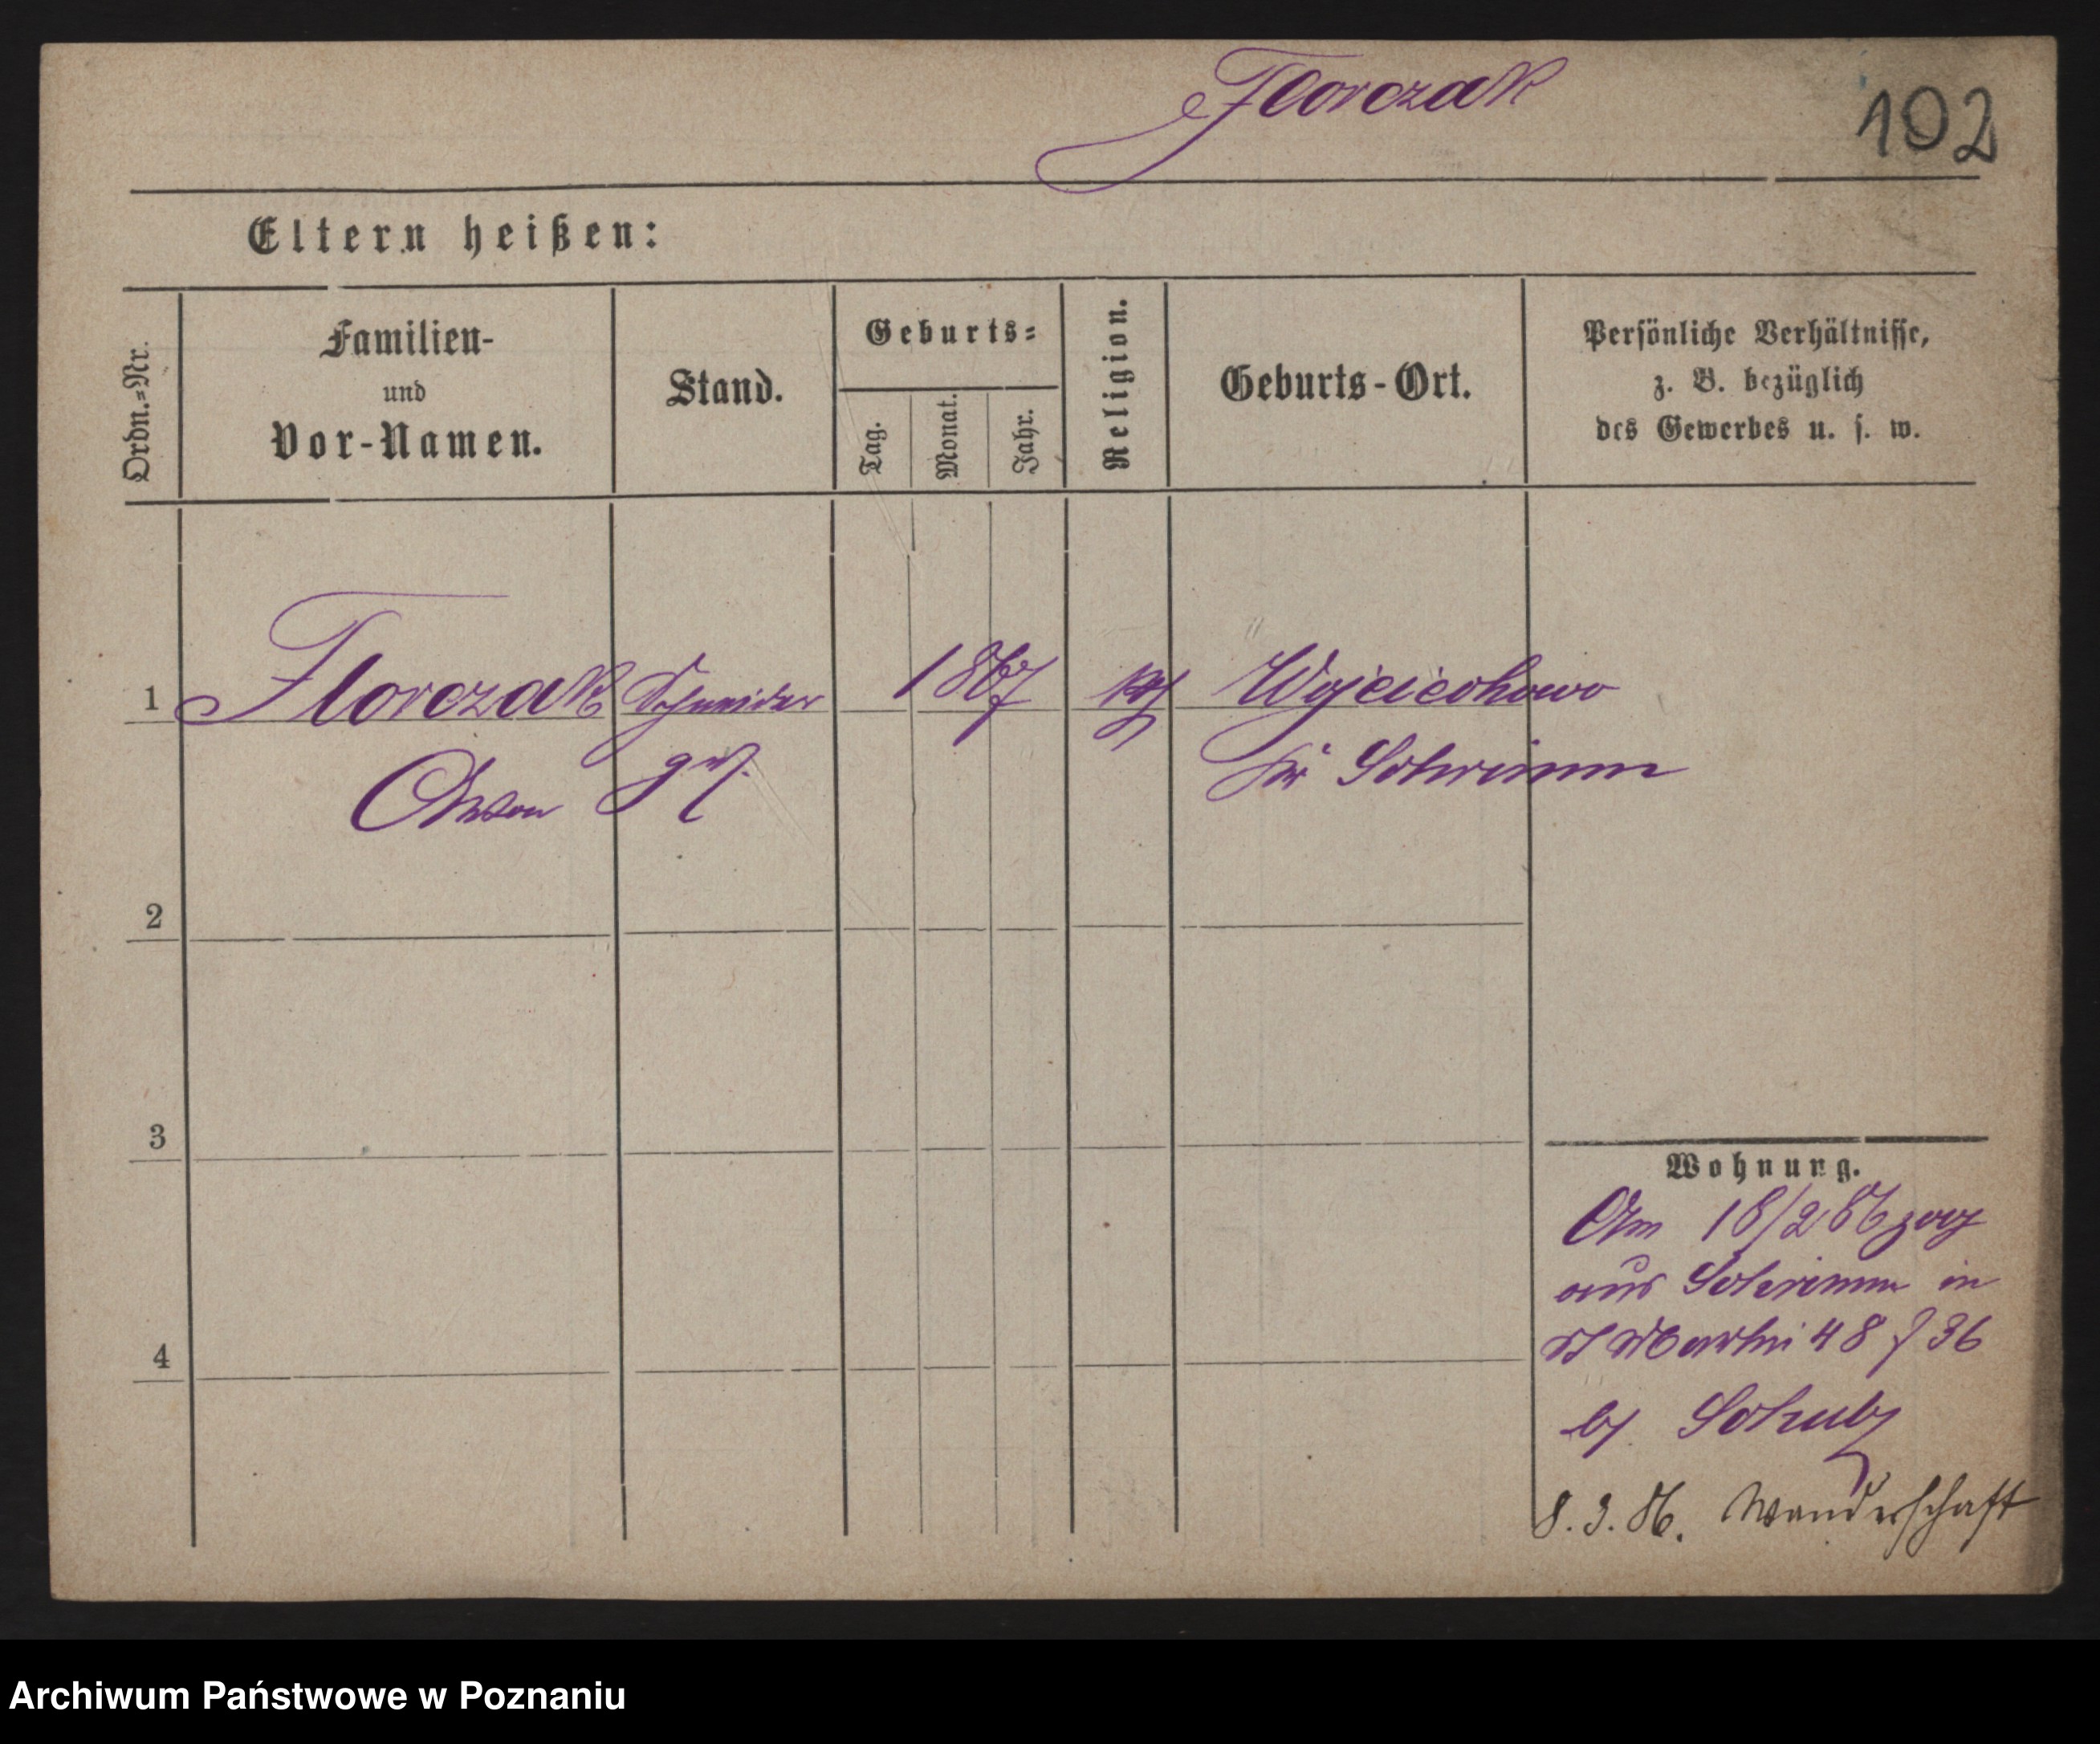 Florczak
102
Eltern heißen:
Ordn.=Nr.
Familien-
und
Vor-Namen.
Stand.
Geburts=
Tag.
Monat.
Jahr.
Religion.
Geburts-Ort.
Persönliche Verhältnisse,
z. B. bezüglich
des Gewerbes u. s. w.
1 Florczak Schneider 1867 kth Wojciechowo
Anton Kr Schrimm
2
3
4
Wohnung.
Am 18/2 86 zog
aus Schrimm in
St Martin 48 / 36
by Schulz
8. 3. 86. Wanderschaft
Archiwum Państwowe w Poznaniu